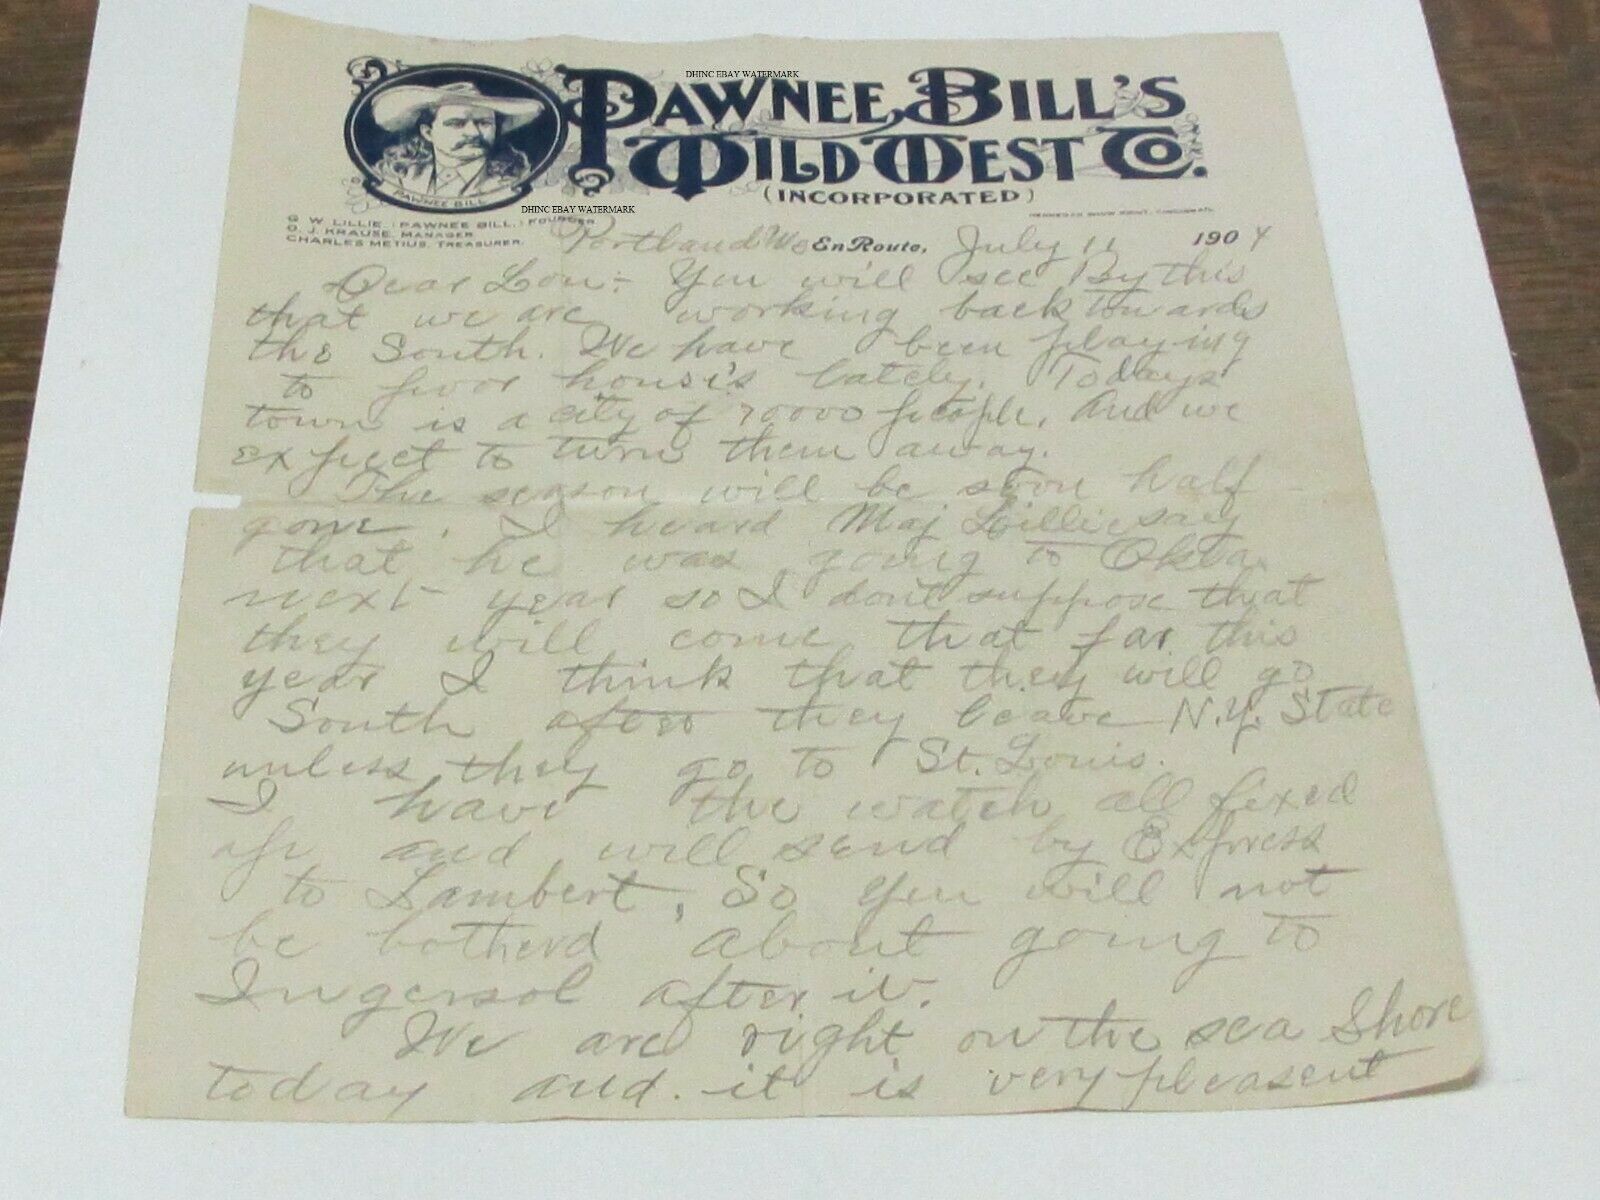 DHINC EBAY WATERMARK
PAWNEE BILL'S
WILD WEST CO.
(INCORPORATED)
PAWNEE BILL
DHINC EBAY WATERMARK
G. W. LILLIE, (PAWNEE BILL,) FOUNDER
G. J. KRAUSE, MANAGER
CHARLES METIUS, TREASURER.
Portland Me En Route, July 11 1904
Dear Lou:- You will see By this
that we are working back towards
the South. We have been playing
to poor houses lately. Todays
town is a city of 70000 people, and we
expect to turn them away.
The season will be soon half
gone. I heard Maj Lillie say
that he was going to Okla.
next year so I dont suppose that
they will come that far this
year I think that they will go
South after they leave N.Y. State
unless they go to St. Louis.
I have the watch all fixed
up and will send by Express
to Lambert, So you will not
be botherd about going to
Ingersol after it.
We are right on the sea Shore
today and it is very pleasent